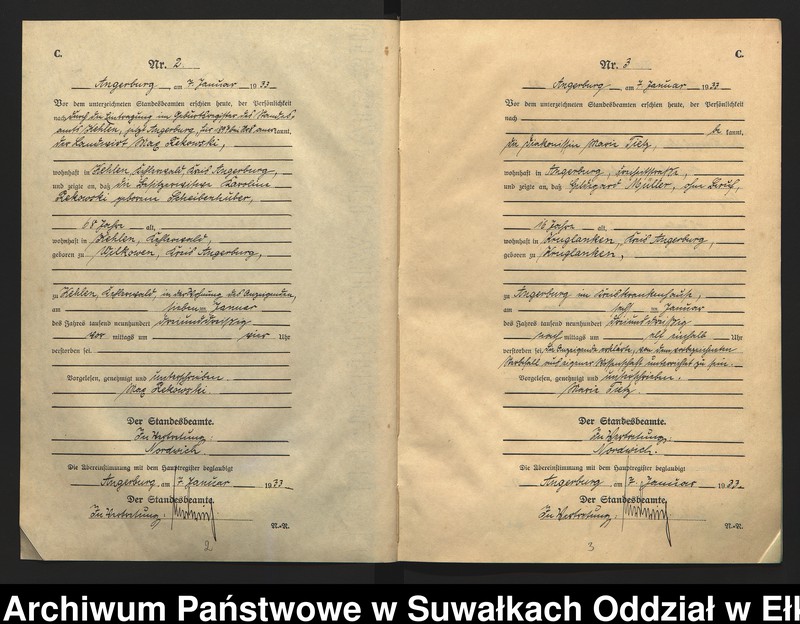 C.
Nr. 2
Angerburg am 7. Januar 1933
Vor dem unterzeichneten Standesbeamten erschien heute, der Persönlichkeit
nach durch die Eintragung im Geburtsregister des Standes-
amts Kehlen, jetzt Angerburg, für kannt,
der Landwirt Max Rekowski,
wohnhaft in Kehlen, Kreis Angerburg,
und zeigte an, daß die Karoline
Rekowski geborene Scheibenhuber,
68 Jahre alt,
wohnhaft in Kehlen,
geboren zu Wilkowen, Kreis Angerburg,
zu Kehlen, in der Wohnung des Anzeigenden,
am sieben ten Januar
des Jahres tausend neunhundert dreiunddreißig
vor mittags um vier Uhr
verstorben sei.
Vorgelesen, genehmigt und unterschrieben.
Max Rekowski.
Der Standesbeamte.
In Vertretung:
Nordwich.
Die Übereinstimmung mit dem Hauptregister beglaubigt
Angerburg am 7. Januar 1933
Der Standesbeamte.
In Vertretung:
2
C.
Nr. 3
Angerburg am 7. Januar 1933
Vor dem unterzeichneten Standesbeamten erschien heute, der Persönlichkeit
nach be kannt,
die Diakonissin Marie Tietz,
wohnhaft in Angerburg,
und zeigte an, daß Hildegard Müller, ohne Beruf,
16 Jahre alt,
wohnhaft in Kruglanken, Kreis Angerburg,
geboren zu Kruglanken,
zu Angerburg im Kreiskrankenhause,
am Januar
des Jahres tausend neunhundert dreiunddreißig
nach mittags um elf einhalb Uhr
verstorben sei. Die Anzeigende erklärte, von dem vorbezeichneten
Sterbfall aus eigener Wissenschaft unterrichtet zu sein.
Vorgelesen, genehmigt und unterschrieben.
Marie Tietz.
Der Standesbeamte.
In Vertretung:
Nordwich.
Die Übereinstimmung mit dem Hauptregister beglaubigt
Angerburg am 7. Januar 1933
Der Standesbeamte.
In Vertretung:
3
Archiwum Państwowe w Suwałkach Oddział w Ełk